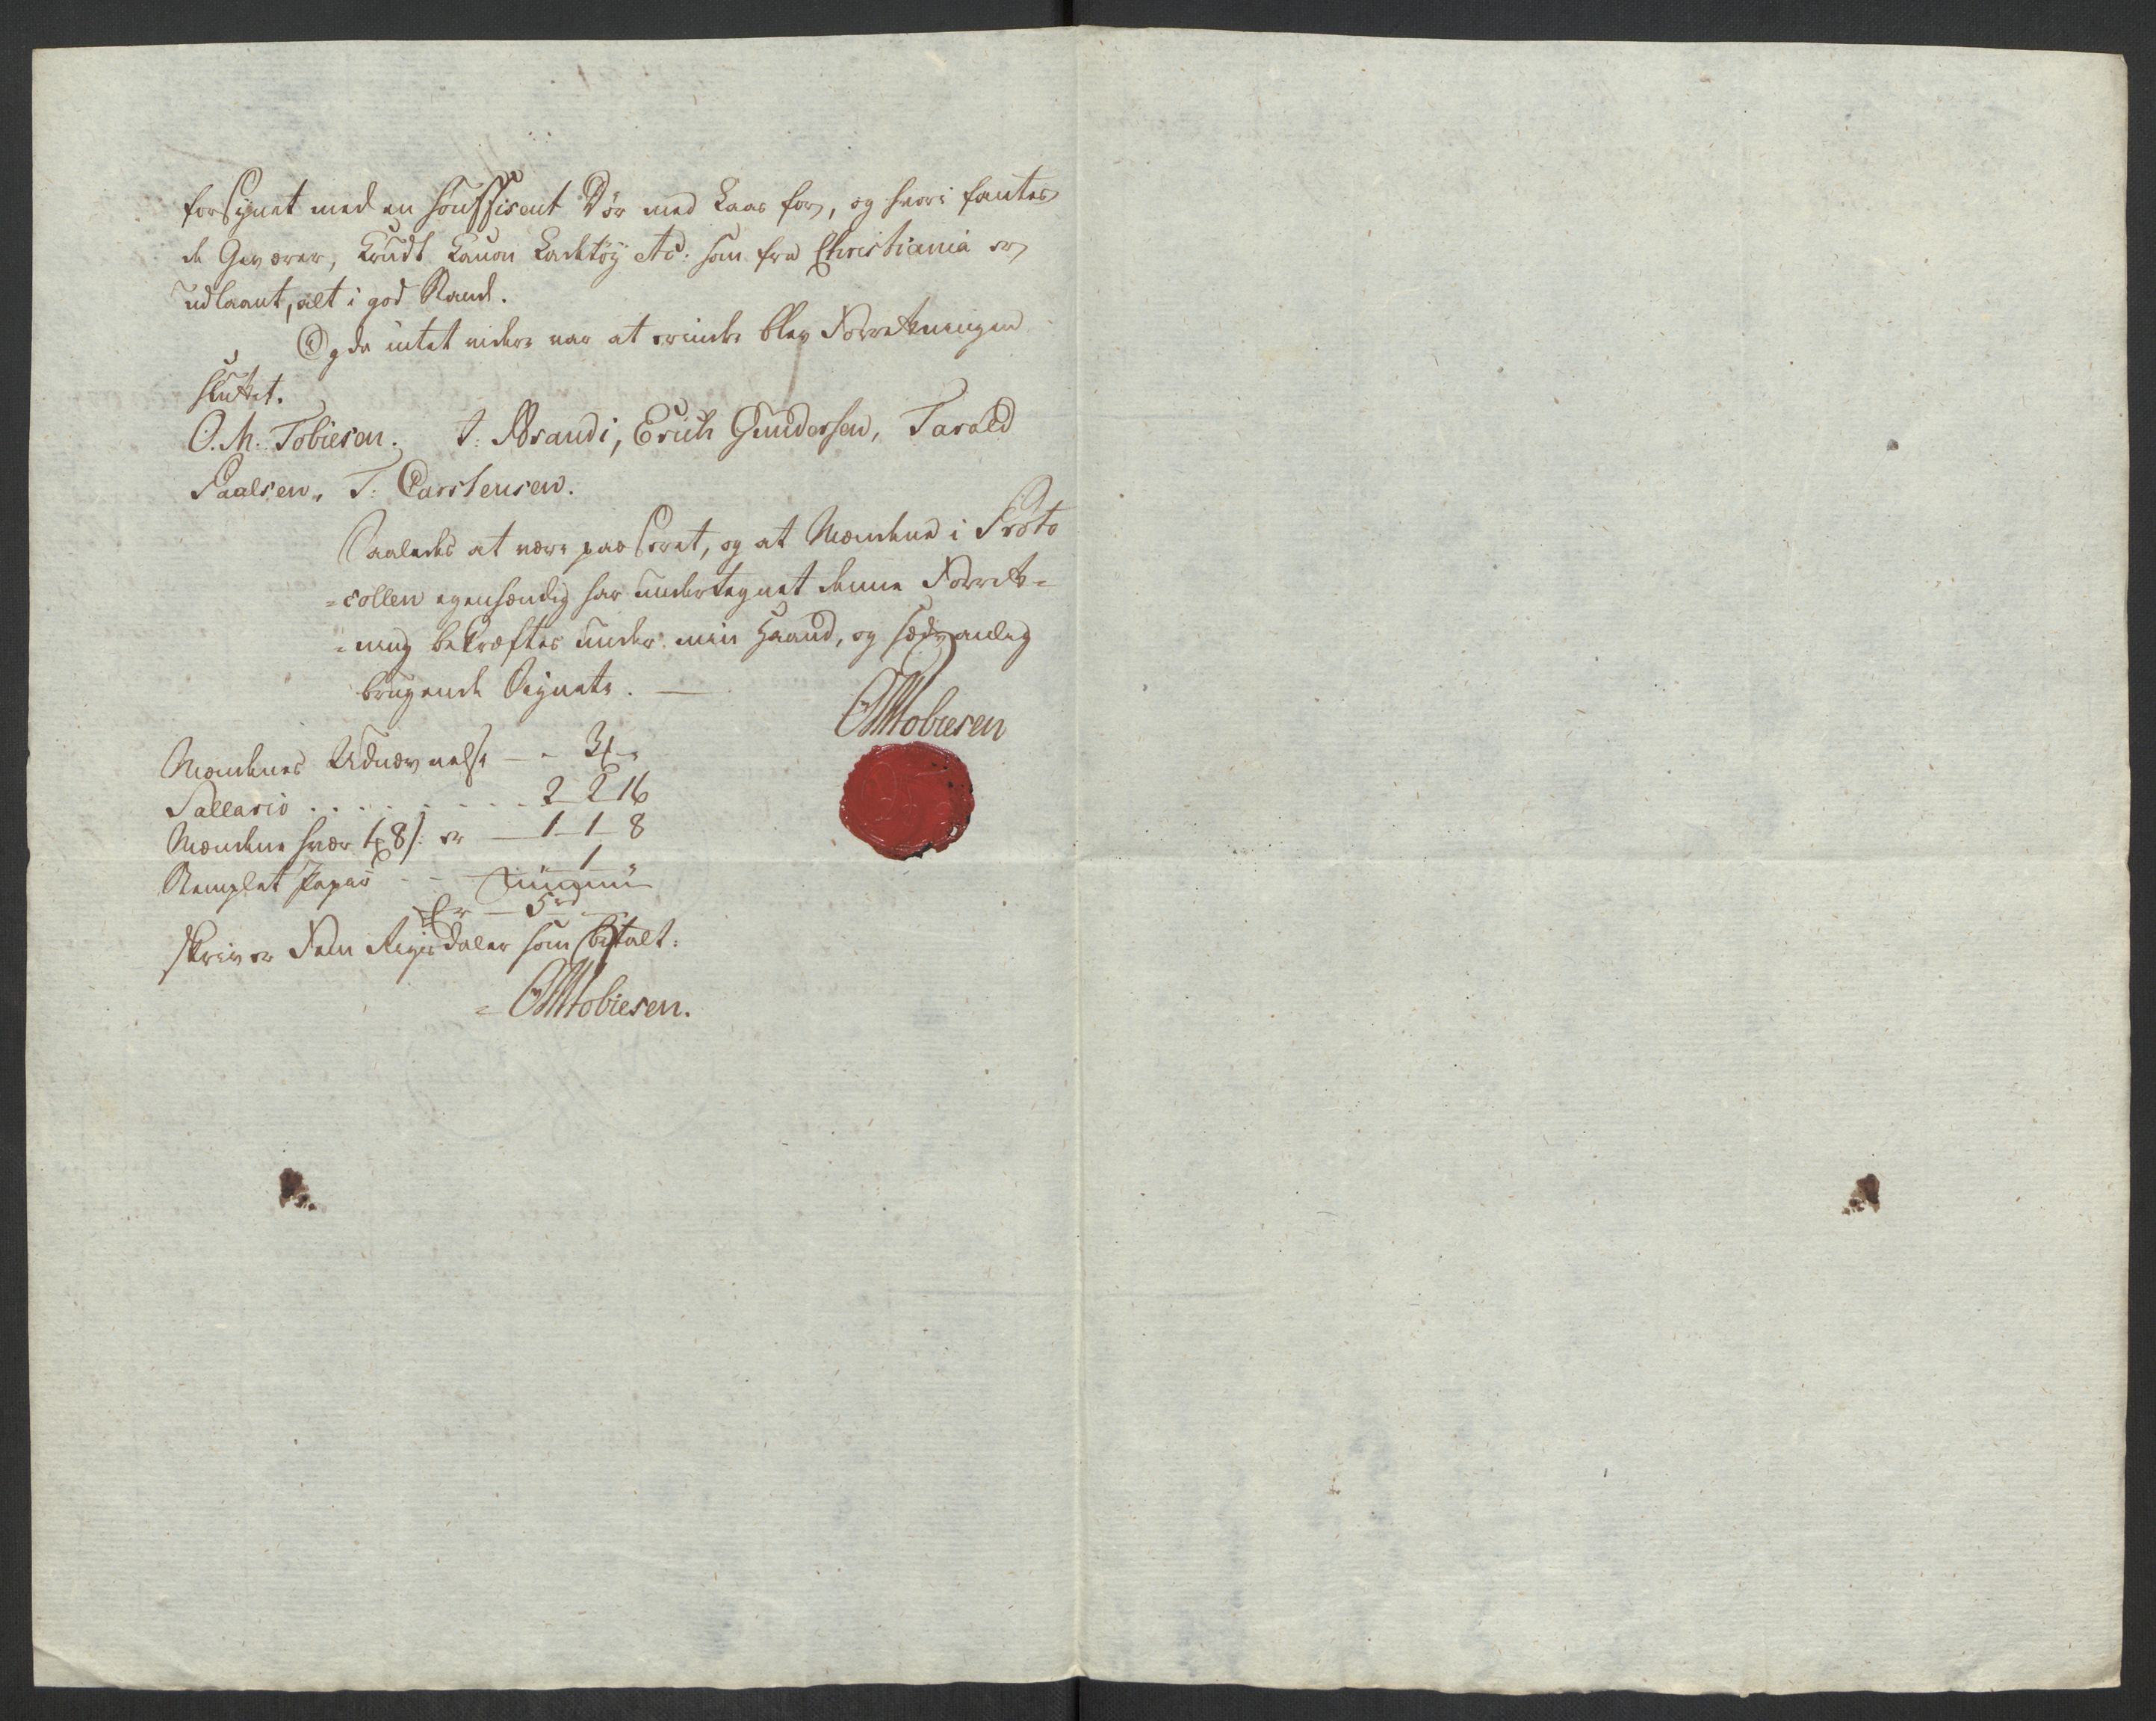 forsynet med en souffisent Dør med Laas for, og hvori fantes
de Geværer, Krudt Canon Ladetøÿ etc: som fra Christiania er
udlaant, alt i god Stand.
Og da intet videre var at erindre blev Forretningen
sluttet.
O. M. Tobiesen. J: Brandi, Erich Gundersen, Tarald
Paalsen, T: Carstensen.
Saaledes at være passeret, og at Mændene i Proto
=collen egenhændig har undertegnet denne Forret=
=ning bekræftes under min Haand, og sædvanlig
brugende Signete. —
OMTobiesen
Mændenes Udnævnelse — - 3 -
Sallario . . . . . . . . 2 - 2 16
Mændene hver 8 s: er — 1 - 1 - 8
Stemplet Papir - - 1
Er — 5 rd
skriver Fem Rigsdaler som betalt:
= OMTobiesen.